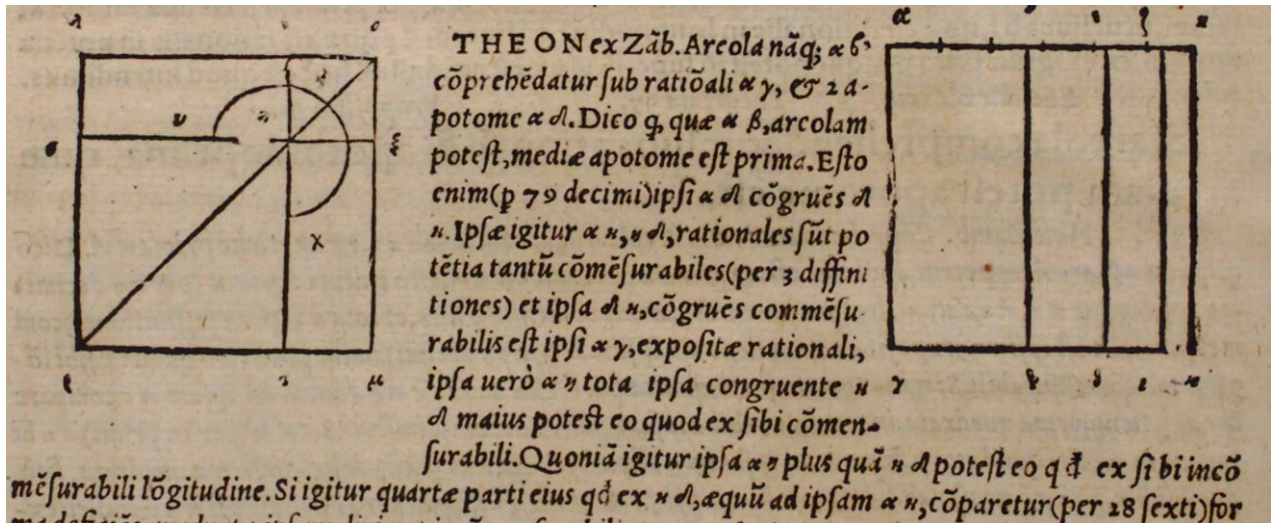 THEON ex Zãb. Areola nãq; α β,
cõprehẽdatur sub ratiõali α γ, & 2 a-
potome α δ. Dico q, quæ α β, areolam
potest, mediæ apotome est prima. Esto
enim (p 79 decimi) ipsi α δ cõgruẽs δ
η. Ipsæ igitur α η, η δ, rationales sũt po
tẽtia tantũ cõmẽsurabiles (per 3 diffini
tiones) et ipsa δ η, cõgruẽs commẽsu-
rabilis est ipsi α γ, expositæ rationali,
ipsa uerò α η tota ipsa congruente η
δ maius potest eo quod ex sibi cõmen-
surabili. Quoniã igitur ipsa α η plus quã η δ potest eo q đ ex sibi incõ
mẽsurabili lõgitudine. Si igitur quartæ parti eius qđ ex η δ, æquũ ad ipsam α η, cõparetur (per 28 sexti) for